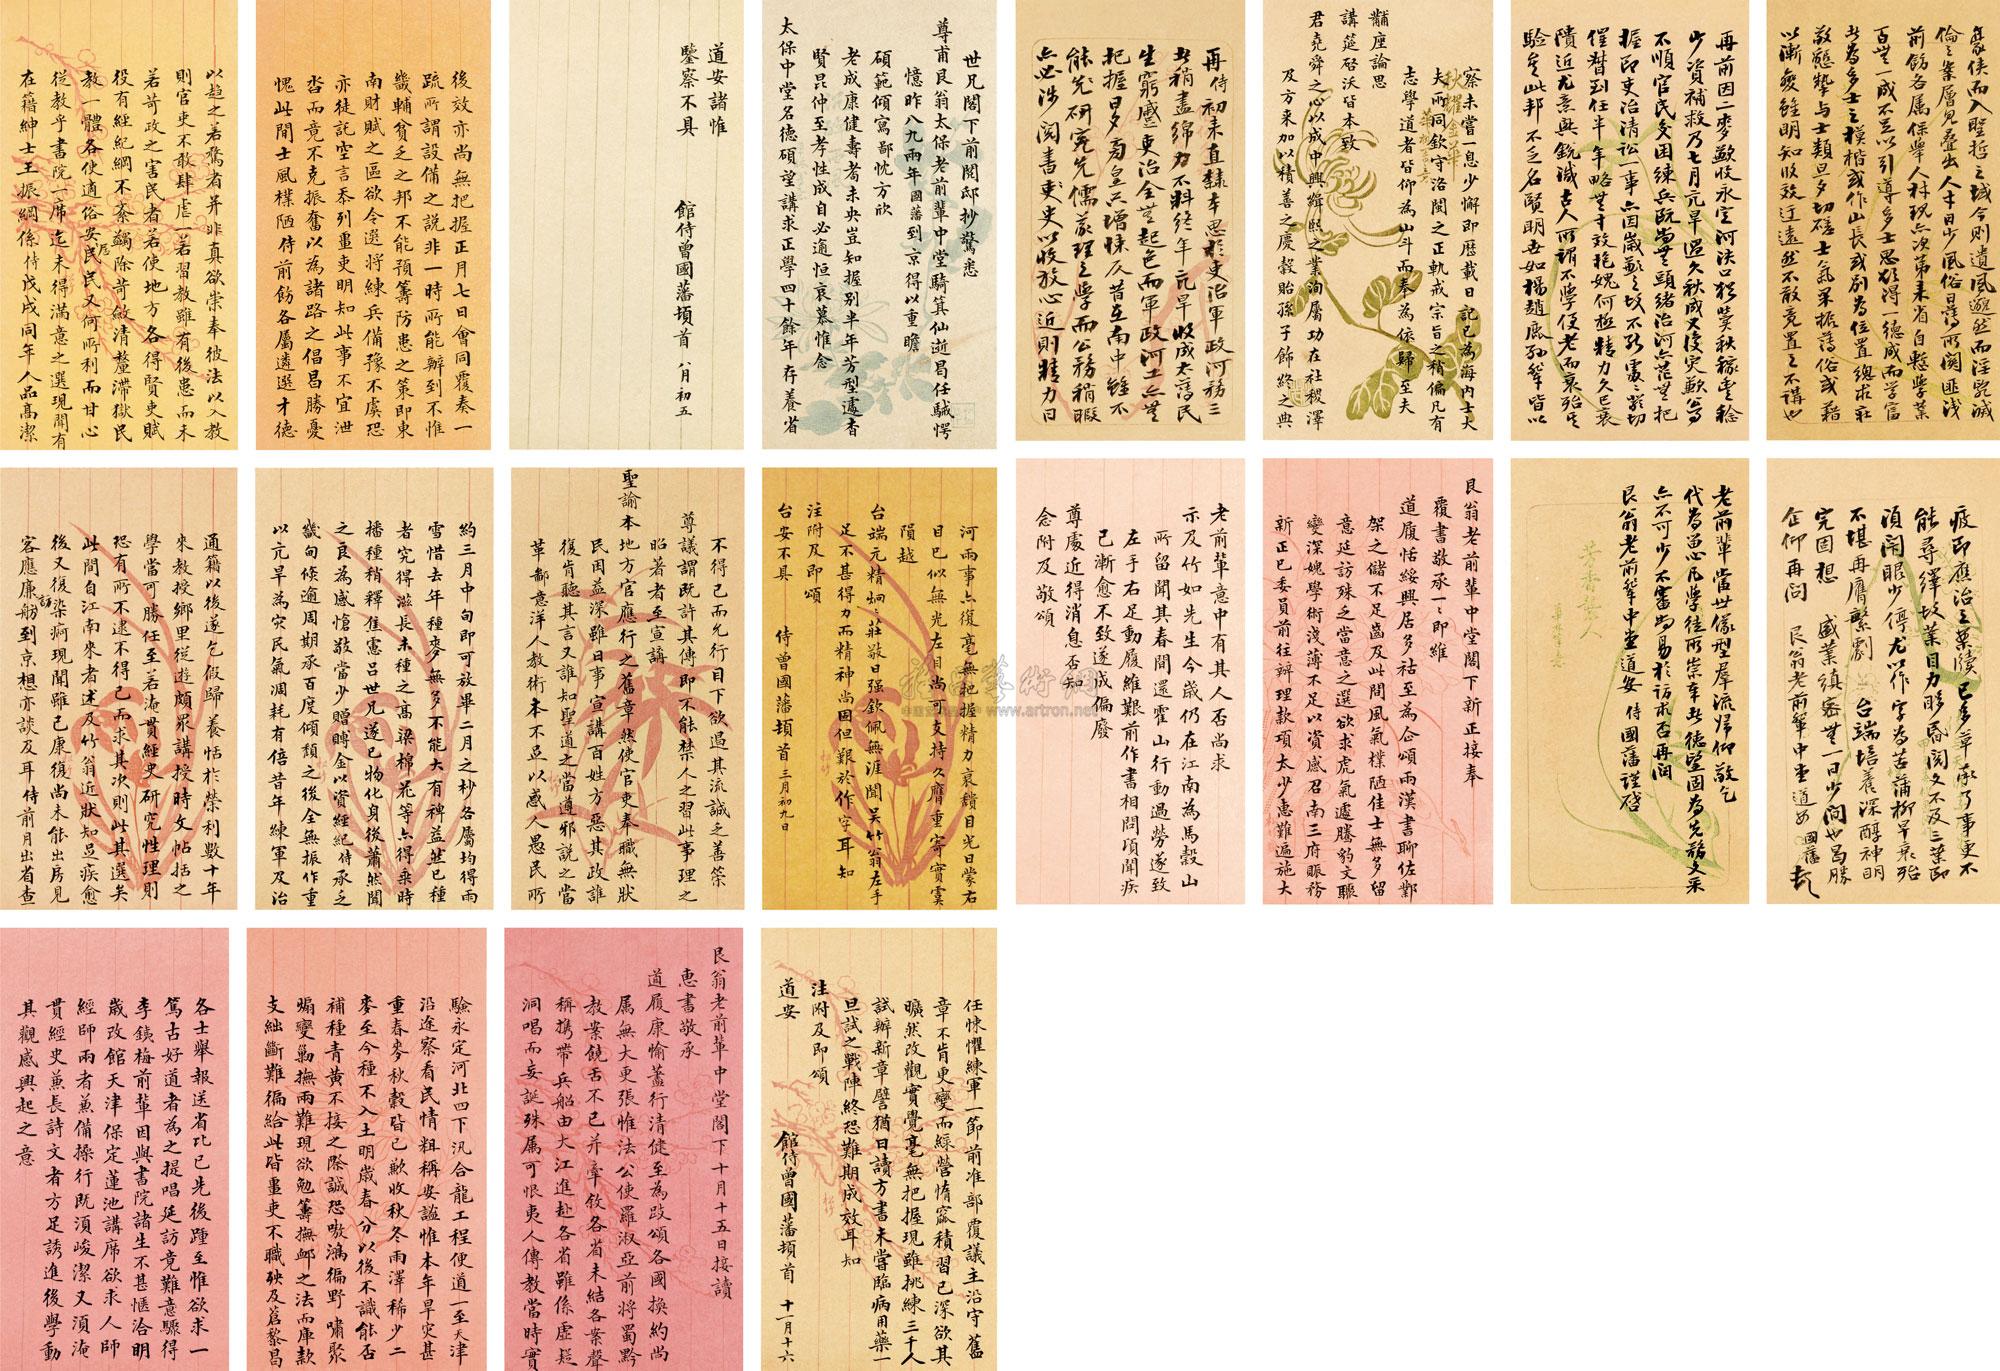 豪俠而入聖哲之域今則遺風邈然而淫詭滅
倫之案層見叠出人才日少風俗日漓所闕匪淺
前飭各屬保舉人材現亦次第來省自慙學業
百無一成不足以引導多士思欲得一德成而學富
者為多士之模楷或作山長或別為位置總求在
敬懇摯与士類旦夕切磋士氣果振薄俗或藉
以漸變雖明知收效迂遠然不敢竟置之不講也
再前因二麥歉收永定河決口猶冀秋稼豐稔
少資補救乃七月亢旱過久秋成又復災歉官
不順官民交困練兵既無頭緒治河亦茫無把
握即吏治清訟一事亦因歲歉之故不能處處切
催督到任半年略無寸效抱愧何極精力久已衰
隤近尤熹無銳減古人所謂不學便老而衰殆其
驗矣此邦不乏名賢明世如楊趙鹿孫等皆以
察未嘗一息少懈即歷載日記已為海內士大
夫所同欽守洛閩之正軌戒宗旨之稍偏凡有
志學道者皆仰為山斗而奉為依歸至夫
黼座論思
講筵啓沃皆本致
君堯舜之心以成中興緝熙之業洵屬功在社稷澤
及方来加以積善之慶穀貽孫子飾終之典
再侍初来直隸本思於吏治軍政河務三
者稍盡綿力不料終年亢旱收成太薄民
生窮蹙吏治全無起色而軍政河工亦無
把握日夕旁皇只增悚仄昔在南中雖不
能先研究先儒義理之學而公務稍暇
亦必涉閱書史以收放心近則精力日
世兄閣下前閱邸抄驚悉
尊甫艮翁太保老前輩中堂騎箕仙逝曷任駴愕
憶昨八九兩年國藩到京得以重瞻
碩範傾寫鄙忱方欣
老成康健壽者未央豈知握別半年芳型遽杳
賢昆仲至孝性成自必適恒哀慕惟念
太保中堂名德碩望講求正學四十餘年存養省
道安諸惟
鑒察不具
館侍曾國藩頓首 八月初五
後效亦尚無把握正月七日會同覆奏一
疏所謂設備之說非一時所能辦到不惟
畿輔貧乏之邦不能預籌防患之策即東
南財賦之區欲令選將練兵備豫不虞恐
亦徒託空言忝列畺吏明知此事不宜泄
沓而竟不克振奮以為諸路之倡昌勝憂
愧此間士風樸陋侍前飭各屬遴選才德
以趨之若驚者并非真欲崇奉彼法以入教
則官吏不敢肆虐一若習教雖有後患而未
若苛政之害民者若使地方各得賢吏賦
役有經紀綱不紊蠲除苛斂清釐滯獄民
教一體各使適俗安居民又何所利而甘心
從教乎書院一席迄未得滿意之選現聞有
在籍紳士王振綱係侍戊戌同年人品高潔
疲即應治之案牘已多草承了事更不
能尋繹故業目力眵昏閱文不及三葉即
須閉眼少停尤以作字為苦蒲柳早衰殆
不堪再膺繁劇 台端培養深醇神明
完固想 盛業縝密無一日少間也曷勝
企仰再問 艮翁老前輩中堂道安 國藩
老前輩當世儀型羣流歸仰敬乞
代為留心凡學徒所崇奉者德望固為先務文采
亦不可少不審尚易於訪求否再問
艮翁老前輩中堂道安 侍國藩謹啓
艮翁老前輩中堂閣下新正接奉
覆書敬承一一即維
道履恬綏興居多祜至為企頌兩漢書聊佐鄴
架之儲不足齒及此間風氣樸陋佳士無多留
意延訪殊乏當意之選欲求虎氣遽騰豹文驟
變深媿學術淺薄不足以資感召南三府賑務
新正已委員前往辦理款項太少惠難遍施大
老前輩意中有其人否尚求
示及竹如先生今歲仍在江南為馬穀山
所留聞其春間還霍山行動過勞遂致
左手右足動履維艱前作書相問頃聞疾
已漸愈不致遂成偏廢
尊處近得消息否知
念附及敬頌
河兩事亦復毫無把握精力衰頹目光日蒙右
目已似無光左目尚可支持久膺重寄實虞
隕越
台端元精炯炯莊敬日强欽佩無涯聞吴竹翁左手
足不甚得力而精神尚固但艱於作字耳知
注附及即頌
台安不具 侍曾國藩頓首 三月初九日
不得已而允行目下欲過其流誠乏善策
尊議謂既許其傳即不能禁人之習此事理之
昭著者至宣講
聖諭本地方官應行之舊章然使官吏奉職無狀
民困益深雖日事宣講百姓方惡其政誰
復肯聽其言又誰知聖道之當遵邪說之當
革鄙意洋人教術本不足以惑人愚民所
約三月中旬即可放畢二月之杪各屬均得雨
雪惜去年種麥無多不能大有裨益蓝已種
者究得滋長未種之高梁棉花等亦得乘時
播種稍釋焦憲吕世兄遂已物化身後蕭然聞
之良為感愴敬當少贈賻金以資經紀侍承乏
畿甸倐逾周期承百度傾頹之後全無振作重
以亢旱為灾民氣凋耗有倍昔年練軍及治
通籍以後遂乞假歸養恬於榮利數十年
來教授鄉里從遊頗衆講授時文帖括之
學當可勝任至若淹貫經史研究性理則
恐有所不逮不得已而求其次則此其選矣
此間自江南來者述及竹翁近狀知足疾愈
後又復染痾現聞雖已康復尚未能出房見
客應廉訪舫到京想亦談及耳侍前月出省查
艮翁老前輩中堂閣下十月十五日接讀
惠書敬承
道履康愉藎行清健至為跂頌各國換約尚
屬無大更張惟法公使羅淑亞前將蜀黔
教案饒舌不已并牽敘各省未結各案聲
稱携帶兵船由大江進赴各省雖係虛疑
洞喝而妄誕殊屬可恨夷人傳教當時實
任悚懼練軍一節前准部覆議主沿守舊
章不肯更變而綠營惰窳積習已深欲其
曠然改觀實覺毫無把握現雖挑練三千人
試辦新章譬猶日讀方書未嘗臨病用藥一
旦試之戰陣終恐難期成效耳知
注附及即頌
道安 館侍曾國藩頓首 十一月十六
驗永定河北四下汛合龍工程便道一至天津
沿途察看民情粗稱安謐惟本年旱灾甚
重春麥秋穀皆已歉收秋冬雨澤稀少二
麥至今種不入土明歲春分以後不識能否
補種青黃不接之際誠恐嗷鴻徧野嘯聚
煽變勦撫兩難現欲勉籌撫䘏之法而庫款
支絀斷難徧給此皆畺吏不職殃及蒼黎昌
各士舉報送省比已先後踵至惟欲求一
篤古好道者為之提唱延訪竟難意驟得
李銕梅前輩因與書院諸生不甚愜洽明
歲改館天津保定蓮池講席欲求人師
經師兩者兼備操行既須峻潔又須淹
貫經史兼長詩文者方足誘進後學動
其觀感興起之意
www.artron.net